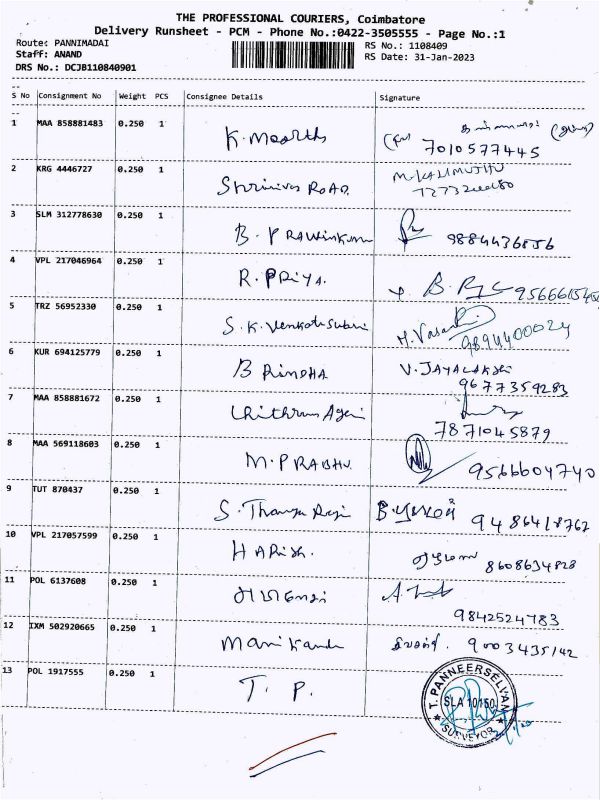 THE PROFESSIONAL COURIERS, Coimbatore
Delivery Runsheet - PCM - Phone No.:0422-3505555 - Page No.:1
Route: PANNIMADAI
Staff: ANAND
DRS No.: DCJB110840901
RS No.: 1108409
RS Date: 31-Jan-2023
S No Consignment No Weight PCS Consignee Details Signature
1 MAA 858881483 0.250 1 K. Moorth
7010577445
2 KRG 4446727 0.250 1 Shrinivas ROAD M. KALIMUTHU
3 SLM 312778630 0.250 1 B. PRAWinkum 9884436856
4 VPL 217046964 0.250 1 R. PRiYA.
5 TRZ 56952330 0.250 1 S. K. Venkatasubri M. Vasa
9894400024
6 KUR 694125779 0.250 1 B RINDHA V. JAYALAKSHI
9677359283
7 MAA 858881672 0.250 1
7871045879
8 MAA 569118603 0.250 1 M. PRABHU 9566604740
9 TUT 870437 0.250 1 S. Thanya 9486418762
10 VPL 217057599 0.250 1 HARISH. 8608634828
11 POL 6137608 0.250 1
9842524783
12 IXM 502920665 0.250 1 Mani Kanda 9003435142
13 POL 1917555 0.250 1 T. P.
T. PANNEERSELVAM
SLA 10150
SURVEYOR